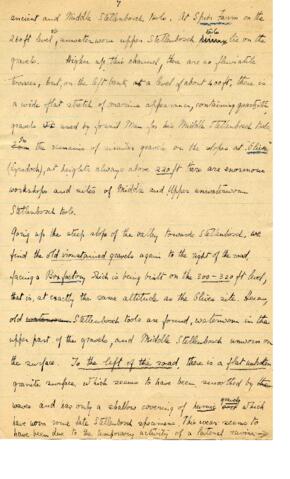 7
ancient and Middle Stellenbosch tools. At Spier farm on the
260ft level, unwaterworn upper Stellenbosch tools lie on the
gravels. Higher up, this channel, there are no fluviatile
terraces, but, on the left bank at a level of about 400ft, there is
a wide flat stretch of marine appearance, containing
gravels used by found Man for his Middle Stellenbosch tools.
In the remains of similar gravels on the slopes at "Olive"
(Lynedoch), at heights always above 220ft there are enormous
workshops and sites of Middle and Upper unwaterworn
Stellenbosch tools.
Going up the steep slope of the valley towards Stellenbosch, we
find the old gravels again to the right of the road,
facing a which is being built on the 300-320ft level,
that is, at exactly the same altitude as the Olive site. Here,
old waterworn Stellenbosch tools are found, waterworn in the
upper part of the gravels, and Middle Stellenbosch unworn on
the surface. To the left of this road, there is a flat
granite surface, which seems to have been smoothed by the
waves and has only a shallow covering of gravels which
have worn some late Stellenbosch specimens. This wear seems to
have been due to the temporary activity of a lateral ravine